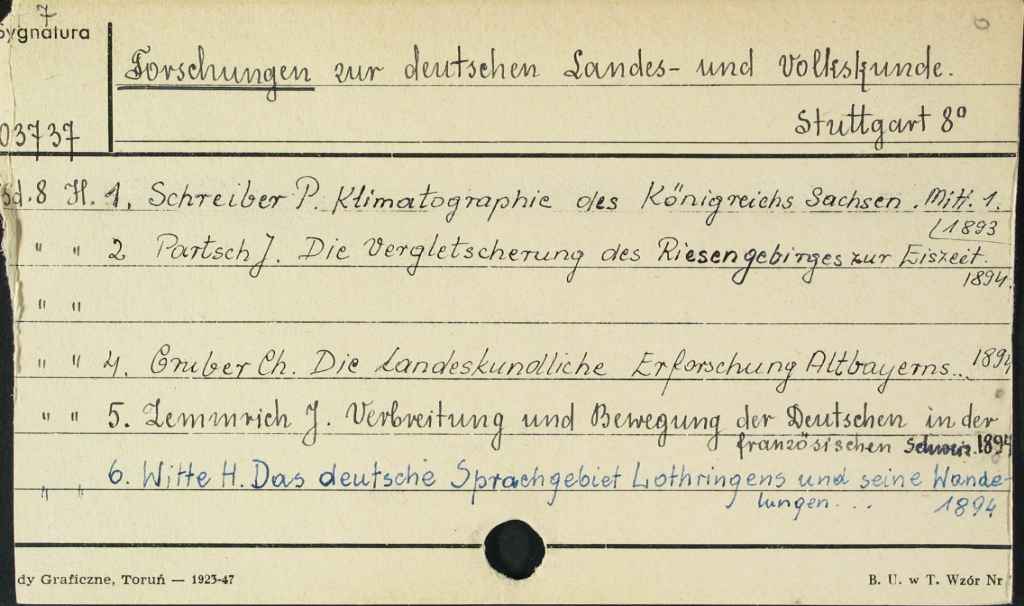 7
Sygnatura
Forschungen zur deutschen Landes- und Volkskunde.
Stuttgart 8º
03737
Bd. 8 H. 1. Schreiber P. Klimatographie des Königreichs Sachsen. Mitt. 1.
1893
" " 2 Partsch J. Die Vergletscherung des Riesengebirges zur Eiszeit.
1894.
" "
" " 4. Gruber Ch. Die Landeskundliche Erforschung Altbayerns... 1894
" " 5. Zemmrich J. Verbreitung und Bewegung der Deutschen in der
französischen Schweiz. 1894
" " 6. Witte H. Das deutsche Sprachgebiet Lothringens und seine Wande-
lungen... 1894
dy Graficzne, Toruń — 1923-47
B. U. w T. Wzór Nr